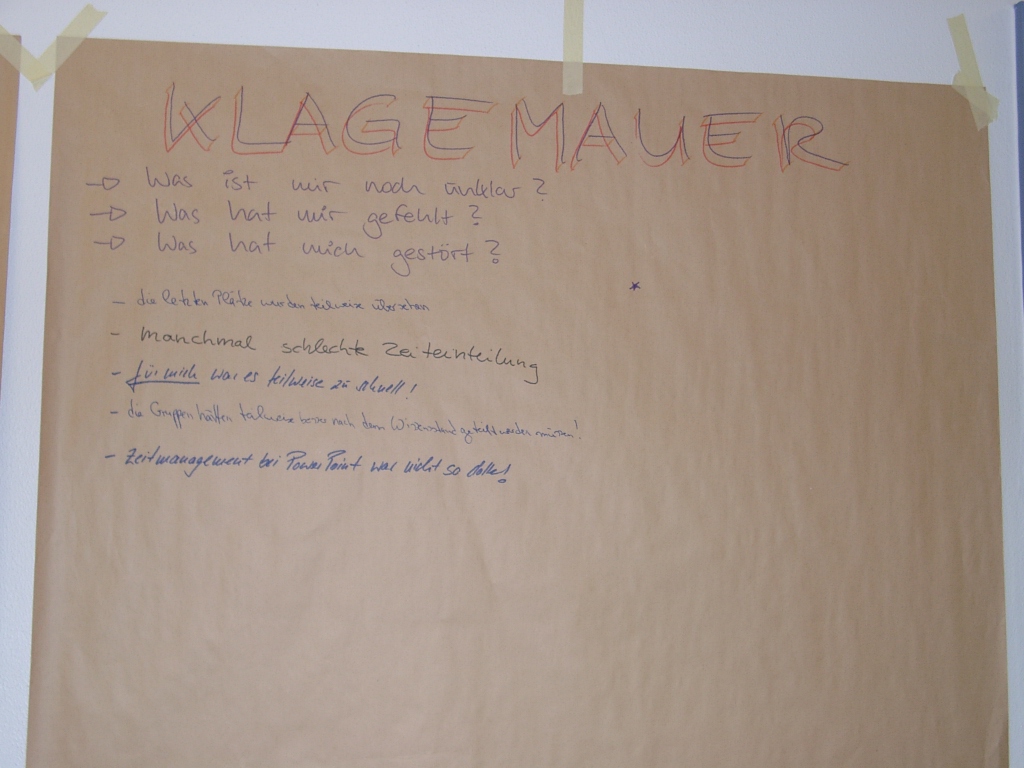 KLAGEMAUER
→ Was ist mir noch unklar?
→ Was hat mir gefehlt?
→ Was hat mich gestört?
*
– die letzten Plätze wurden teilweise übersehen
– Manchmal schlechte Zeiteinteilung
– für mich war es teilweise zu schnell!
– die Gruppen hätten teilweise besser nach dem Wissensstand geteilt werden müssen!
– Zeitmanagement bei PowerPoint war nicht so dolle!